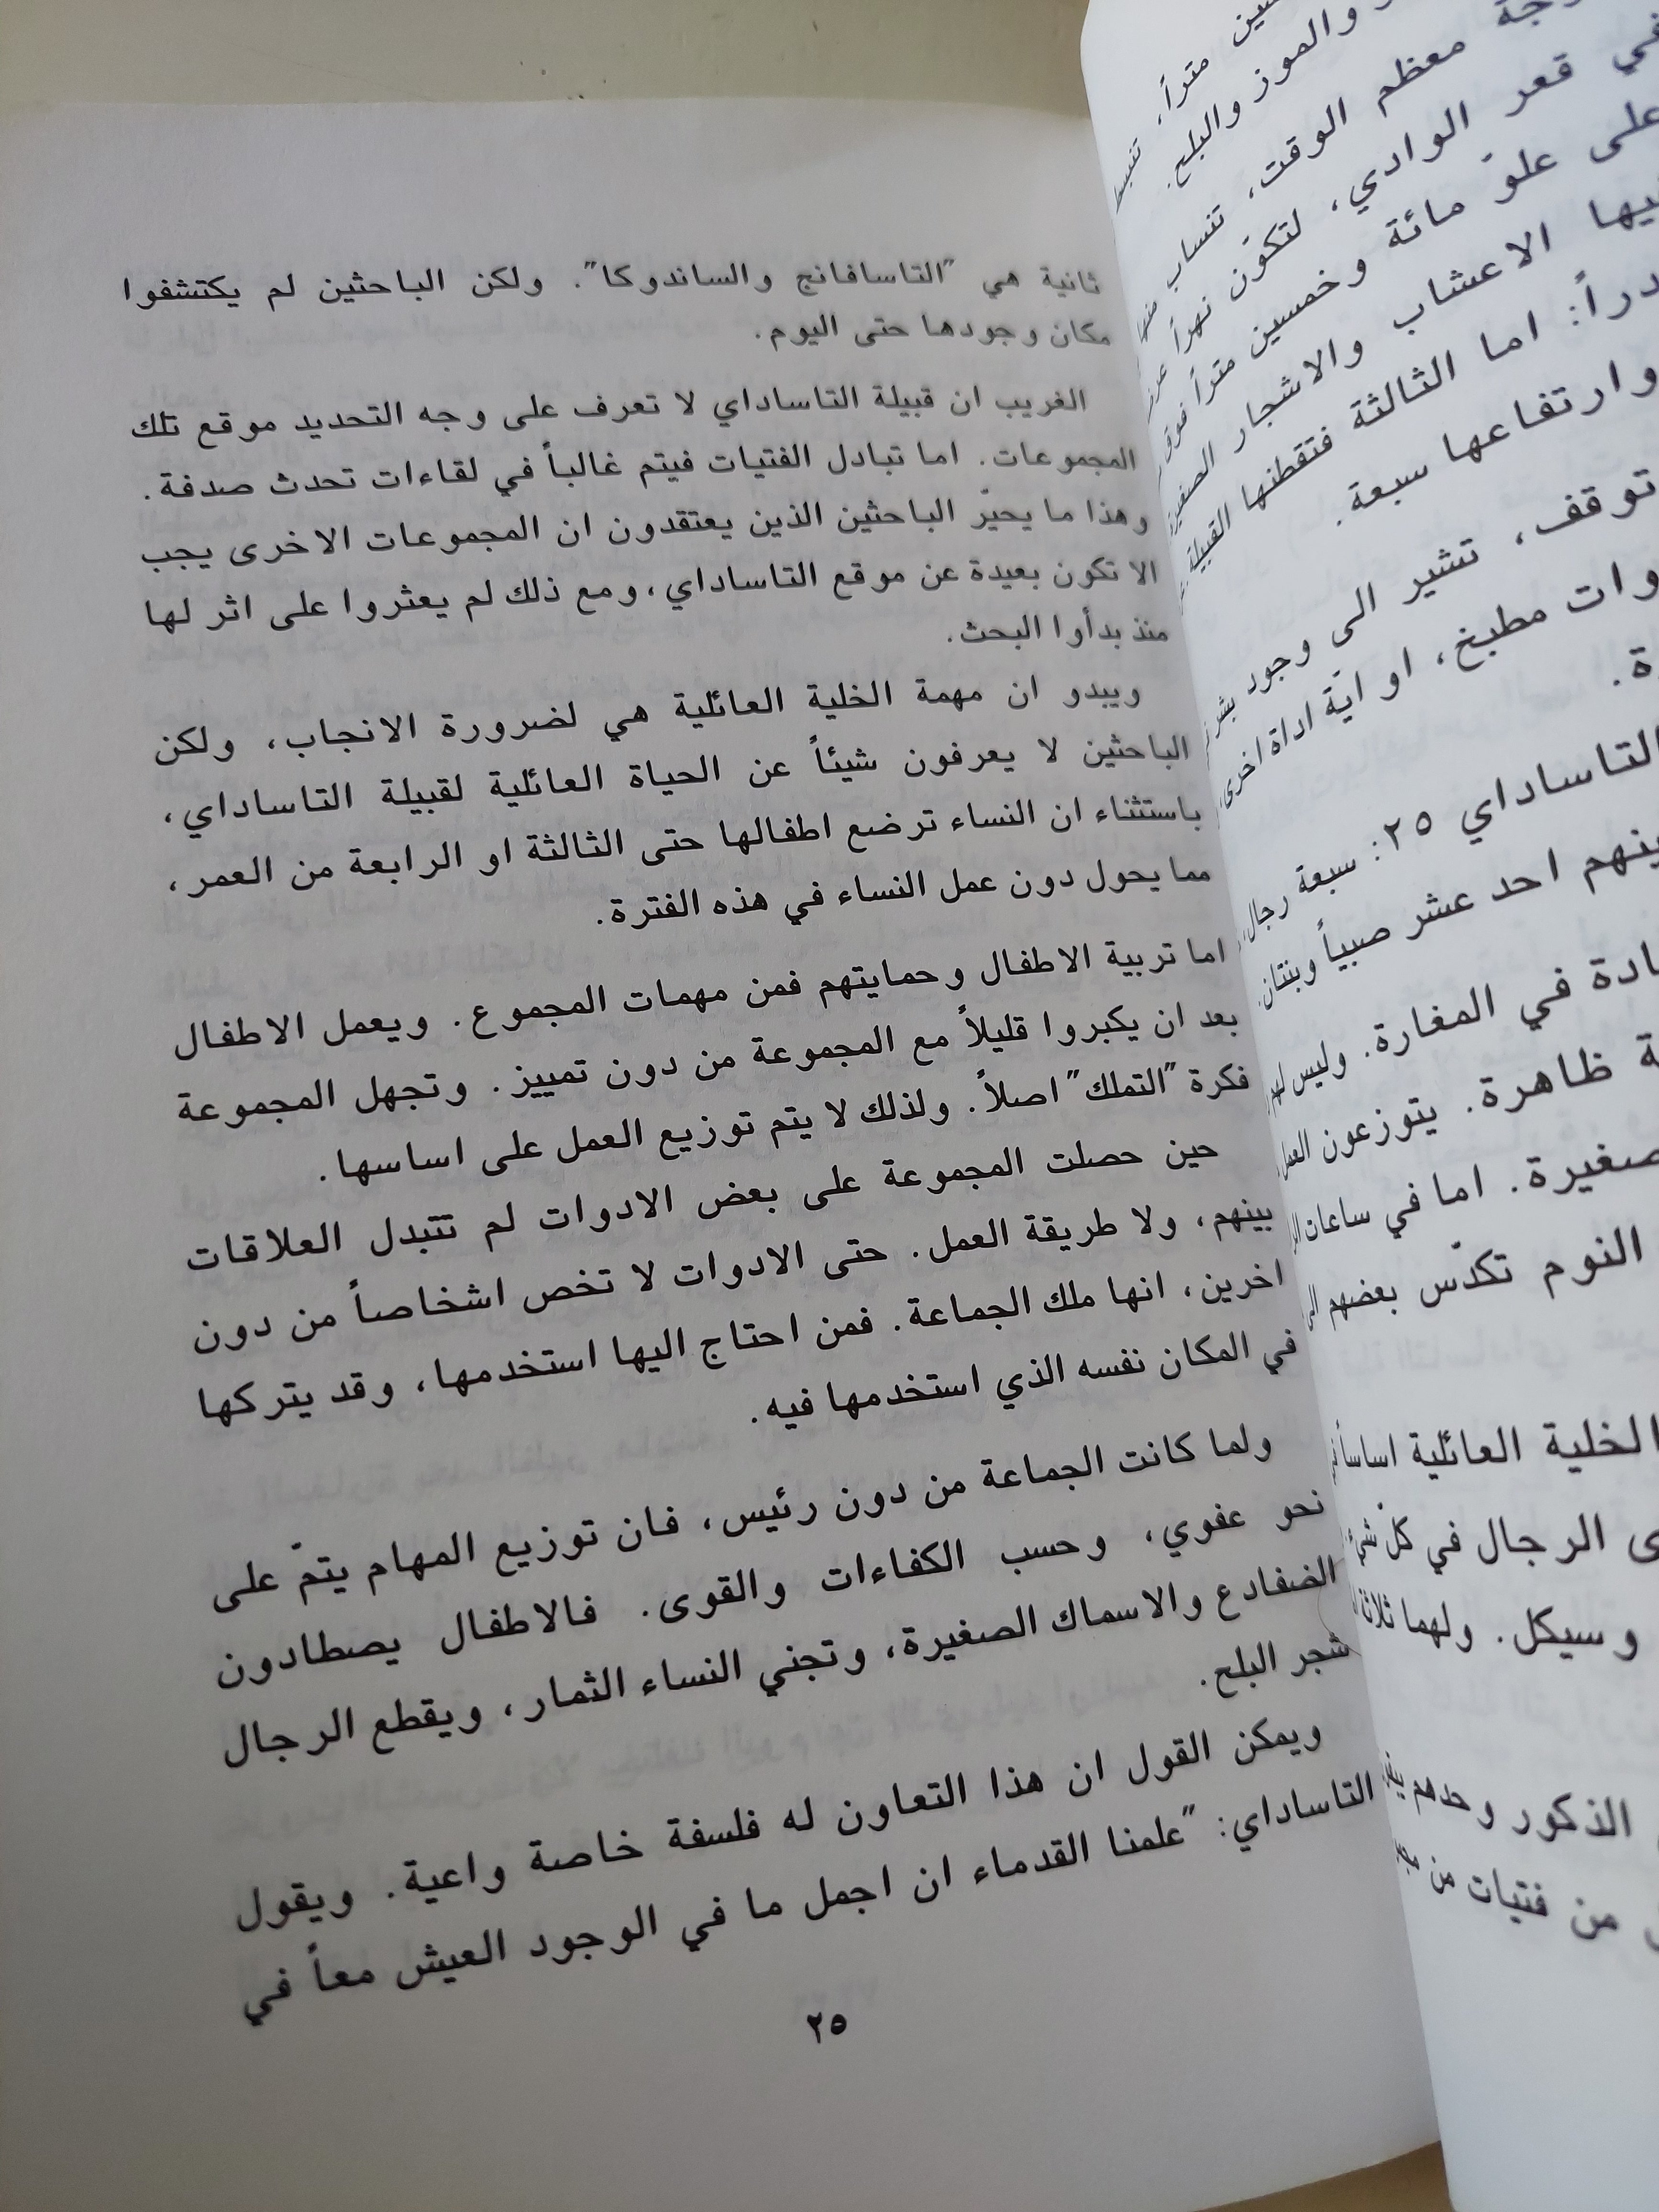 سين متراً، تنبسط
والموز والبلح.
معظم الوقت، تنساب منها
في قعر الوادي، لتكوّن نهراً
على علوّ مائة وخمسين متراً فوق
الاعشاب والاشجار الصغيرة
اما الثالثة فتقطنها القبيلة
وارتفاعها سبعة.
توقف، تشير الى وجود بشر
مطبخ، او اية اداة اخرى
التاساداي ٢٥: سبعة رجال،
احد عشر صبياً وبنتان.
في المغارة. وليس لهم
ظاهرة. يتوزعون العمل
صغيرة. اما في ساعات
النوم تكدّس بعضهم الى
الخلية العائلية اساساً
الرجال في كلّ شيء
وسيكل. ولهما ثلاثة
الذكور وحدهم
من فتيات من
ثانية هي "التاسافانج والساندوكا". ولكن الباحثين لم يكتشفوا
مكان وجودها حتى اليوم.
الغريب ان قبيلة التاساداي لا تعرف على وجه التحديد موقع تلك
المجموعات. اما تبادل الفتيات فيتم غالباً في لقاءات تحدث صدفة.
وهذا ما يحيّر الباحثين الذين يعتقدون ان المجموعات الاخرى يجب
الا تكون بعيدة عن موقع التاساداي، ومع ذلك لم يعثروا على اثر لها
منذ بدأوا البحث.
ويبدو ان مهمة الخلية العائلية هي لضرورة الانجاب، ولكن
الباحثين لا يعرفون شيئاً عن الحياة العائلية لقبيلة التاساداي،
باستثناء ان النساء ترضع اطفالها حتى الثالثة او الرابعة من العمر،
مما يحول دون عمل النساء في هذه الفترة.
اما تربية الاطفال وحمايتهم فمن مهمات المجموع. ويعمل الاطفال
بعد ان يكبروا قليلاً مع المجموعة من دون تمييز. وتجهل المجموعة
فكرة "التملك" اصلاً. ولذلك لا يتم توزيع العمل على اساسها.
حين حصلت المجموعة على بعض الادوات لم تتبدل العلاقات
بينهم، ولا طريقة العمل. حتى الادوات لا تخص اشخاصاً من دون
اخرين، انها ملك الجماعة. فمن احتاج اليها استخدمها، وقد يتركها
في المكان نفسه الذي استخدمها فيه.
ولما كانت الجماعة من دون رئيس، فان توزيع المهام يتمّ على
نحو عفوي، وحسب الكفاءات والقوى. فالاطفال يصطادون
الضفادع والاسماك الصغيرة، وتجني النساء الثمار، ويقطع الرجال
شجر البلح.
ويمكن القول ان هذا التعاون له فلسفة خاصة واعية. ويقول
التاساداي: "علمنا القدماء ان اجمل ما في الوجود العيش معاً في
٢٥